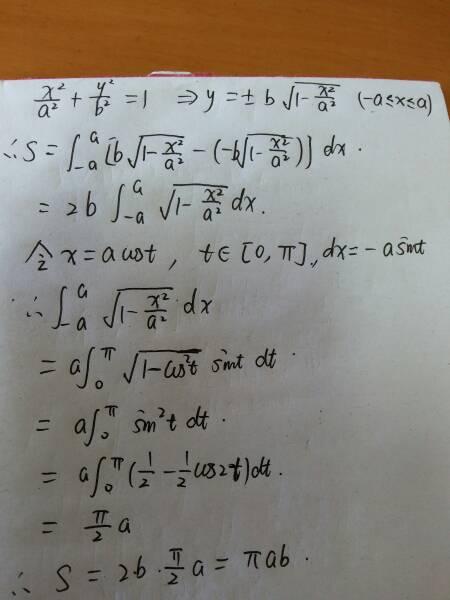 x²/a² + y²/b² = 1 ⇒ y = ± b √(1 - x²/a²) (-a ≤ x ≤ a)
∴ S = ∫_{-a}^{a} [b √(1 - x²/a²) - (-b √(1 - x²/a²))] dx .
= 2b ∫_{-a}^{a} √(1 - x²/a²) dx .
令 x = a cost , t ∈ [0, π] , dx = -a sint
∴ ∫_{-a}^{a} √(1 - x²/a²) dx
= a ∫_{0}^{π} √(1 - cos²t) sint dt .
= a ∫_{0}^{π} sin²t dt .
= a ∫_{0}^{π} (1/2 - 1/2 cos2t) dt .
= π/2 a
∴ S = 2b · π/2 a = πab .